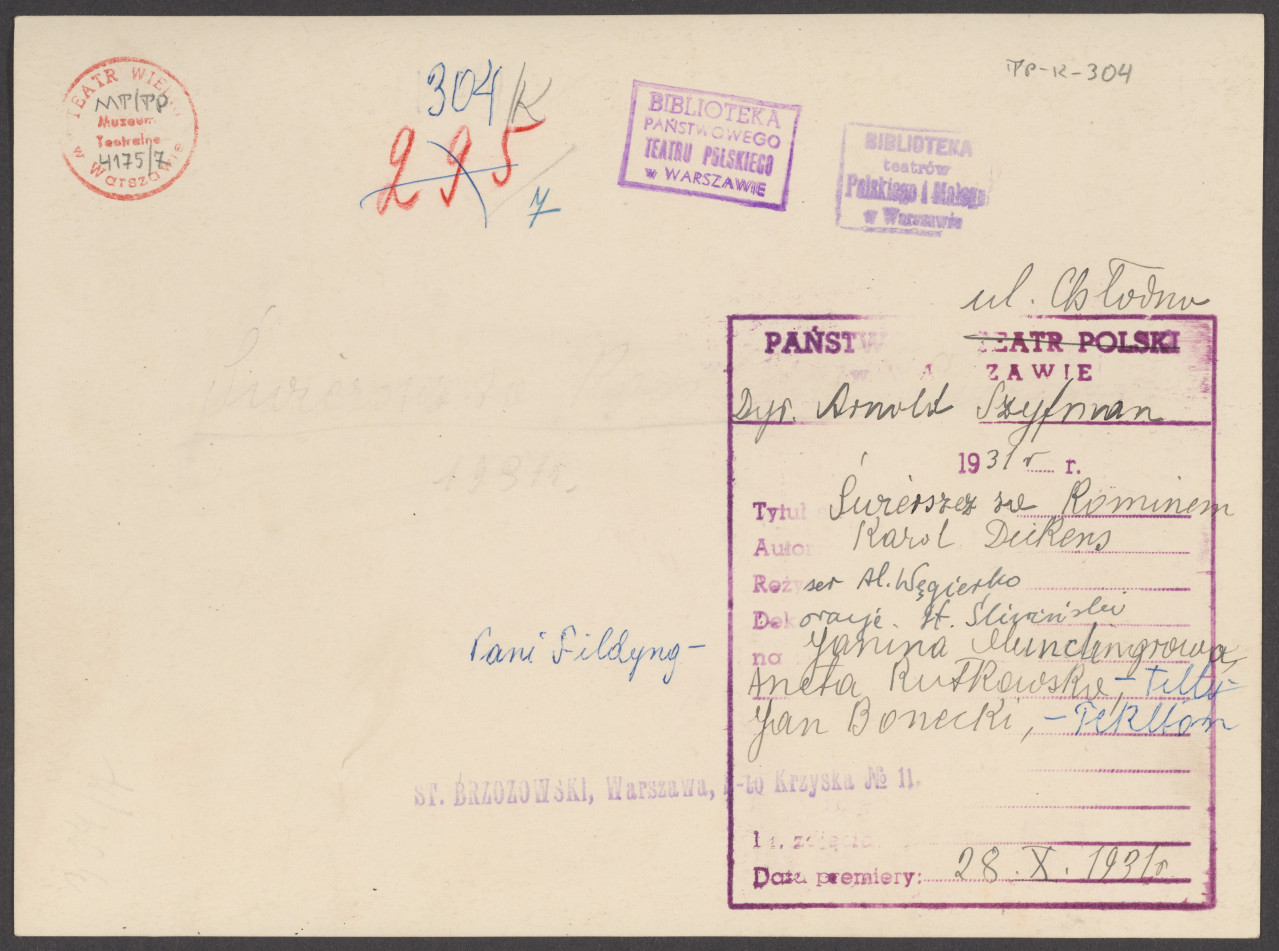 TEATR WIELKI
MT/TP
Muzeum
Teatralne
4175/7
w Warszawie
304/K
295
7
BIBLIOTEKA
PAŃSTWOWEGO
TEATRU POLSKIEGO
w WARSZAWIE
BIBLIOTEKA
teatrów
Polskiego i Małego
w Warszawie
TP-K-304
ul. Chłodna
PAŃSTW TEATR POLSKI
w WA ZAWIE
Dyr. Arnold Szyfman
1931 r r.
Tytuł Świerszcz za Kominem
Autor Karol Dickens
Reżyser Al. Węgierko
Dekoracje. St. Śliwiński
na Janina Munclingrowa,
Pani Fildyng -
Aneta Rutkowska, - Tilli
Jan Bonecki, - Teklton
ST. BRZOZOWSKI, Warszawa, Ś-to Krzyska № 11.
zdjęcia
Data premiery: 28. X. 1931r
Świerszcz za
1931r.
304/K